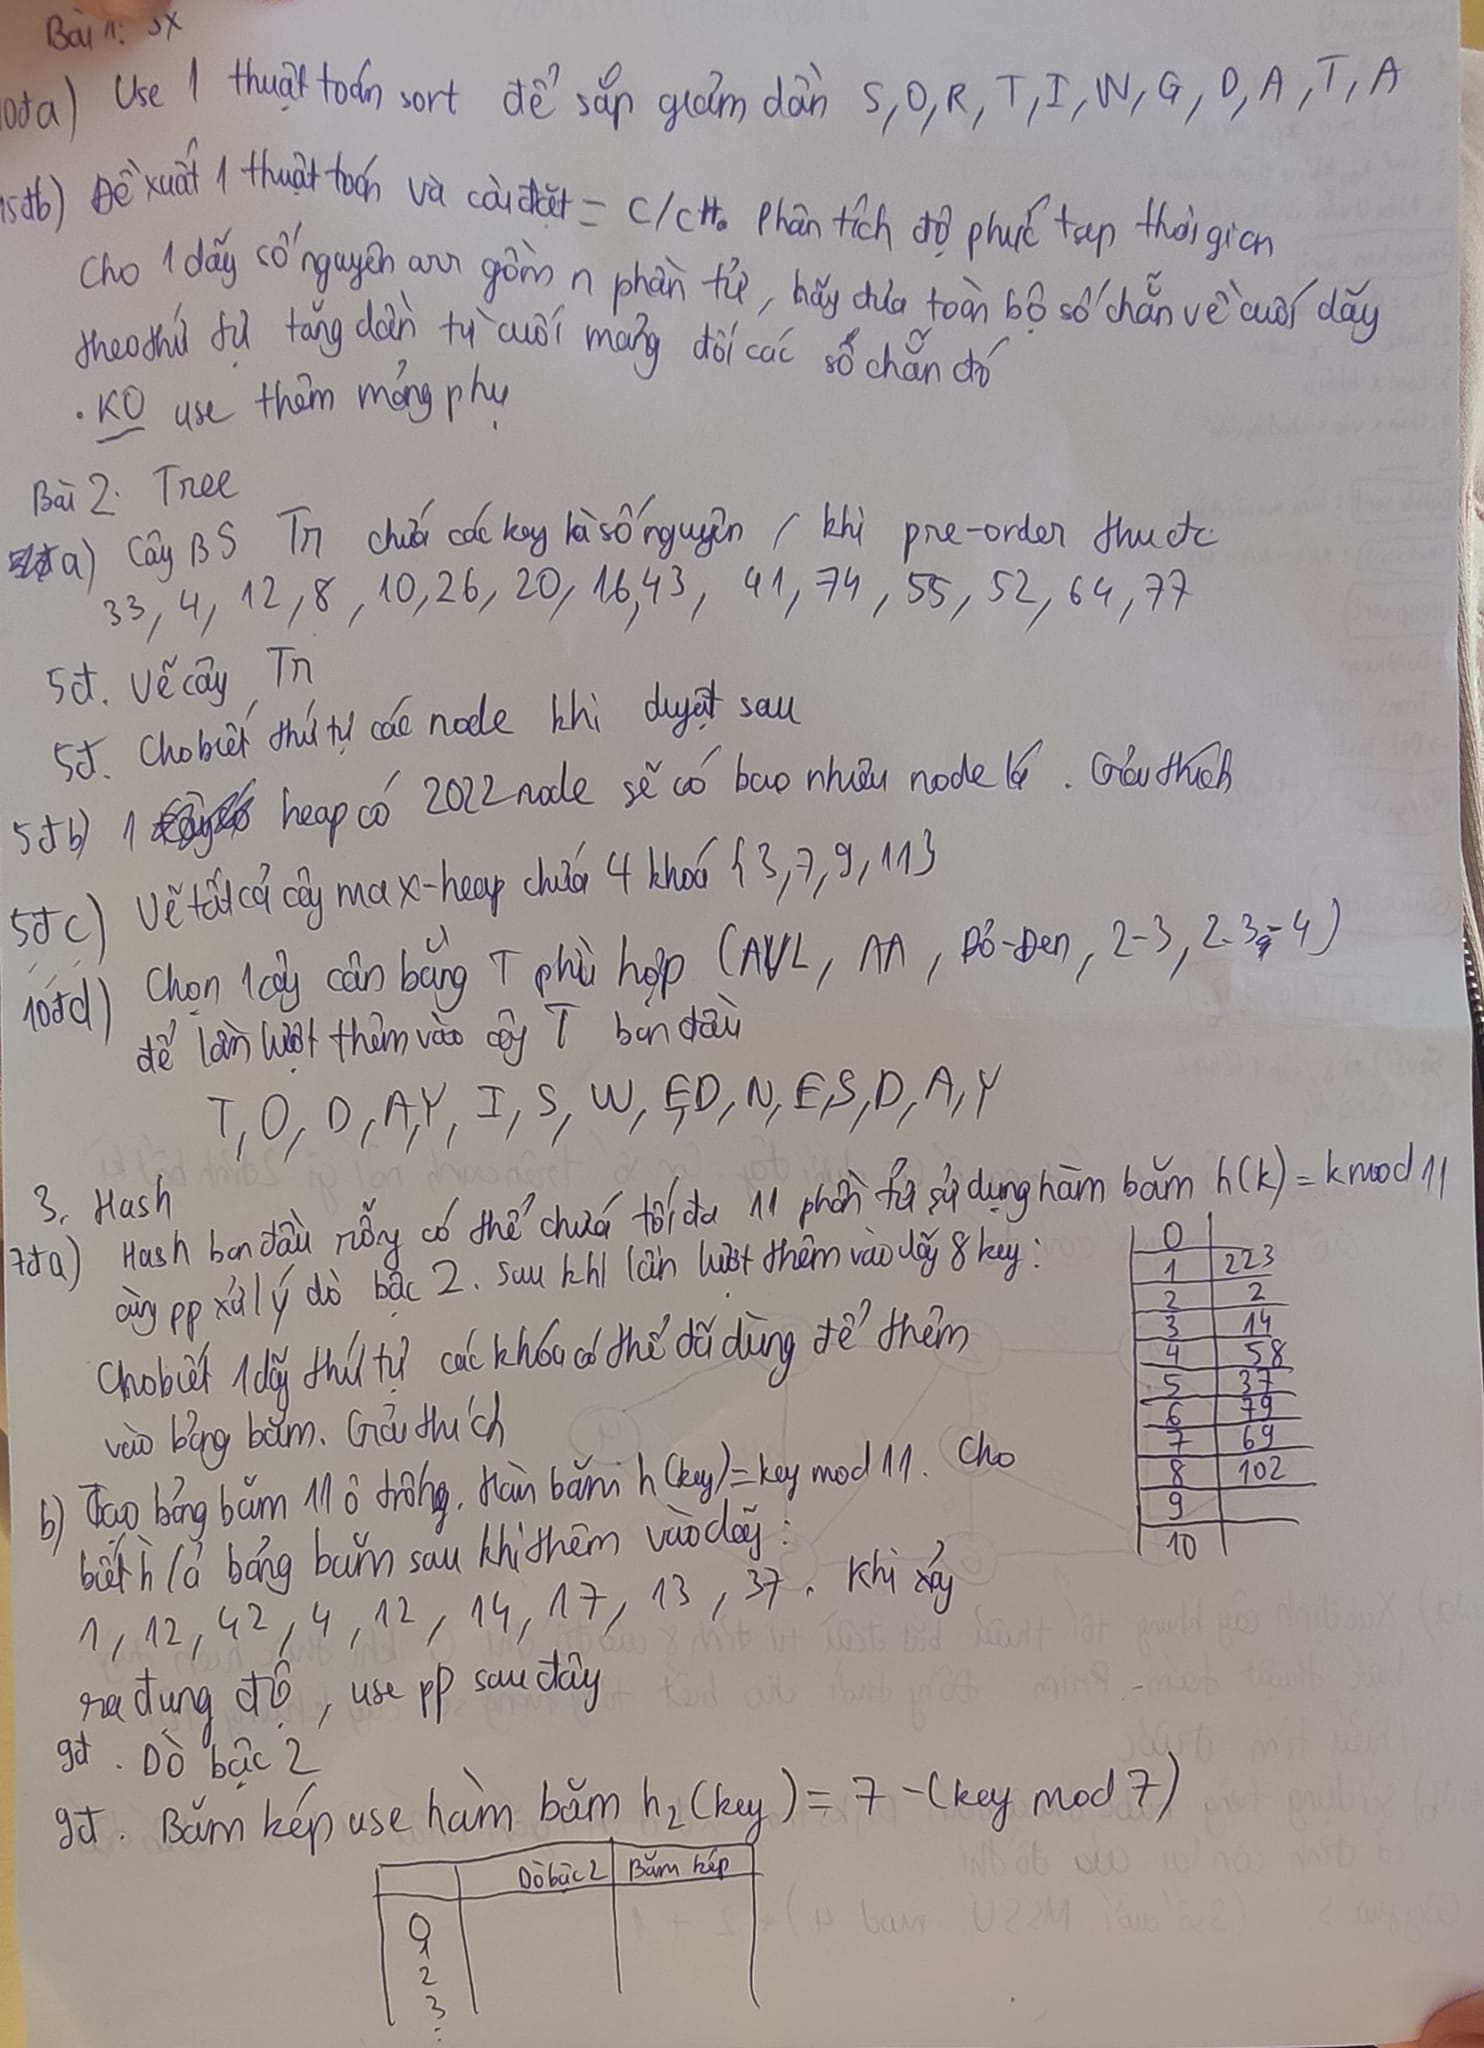 Bài 1: SX
10đ a) Use 1 thuật toán sort để sắp giảm dần S, O, R, T, I, N, G, D, A, T, A
15đ b) Đề xuất 1 thuật toán và cài đặt = C/C++. Phân tích độ phức tạp thời gian
Cho 1 dãy số nguyên arr gồm n phần tử, hãy đưa toàn bộ số chẵn về cuối dãy
theo thứ tự tăng dần từ cuối mảng đối các số chẵn đó
. KO use thêm mảng phụ
Bài 2. Tree
a) Cây BS Tn chứa các key là số nguyên, khi pre-order thu đc
33, 4, 12, 8, 10, 26, 20, 16, 43, 41, 74, 55, 52, 64, 77
5đ. Vẽ cây Tn
5đ. Cho biết thứ tự các node khi duyệt sau
5đ b) 1 heap có 2022 node sẽ có bao nhiêu node lá. Giải thích
5đ c) Vẽ tất cả cây max-heap chứa 4 khoá {3, 7, 9, 11}
10đ d) Chọn 1 cây cân bằng T phù hợp (AVL, AA, Đỏ-Đen, 2-3, 2-3-4)
để lần lượt thêm vào cây T ban đầu
T, O, D, A, Y, I, S, W, E, D, N, E, S, D, A, Y
3. Hash
7đ a) Hash ban đầu rỗng có thể chứa tối đa 11 phần tử sử dụng hàm băm h(k) = k mod 11
cùng pp xử lý dò bậc 2. Sau khi lần lượt thêm vào dãy 8 key:
Cho biết 1 dãy thứ tự các khóa có thể đã dùng để thêm
vào bảng băm. Giải thích
0
1 223
2 2
3 14
4 58
5 37
6 79
7 69
8 102
9
10
b) Tạo bảng băm 11 ô trống. Hàm băm h(key) = key mod 11. Cho
biết h là bảng băm sau khi thêm vào dãy:
1, 12, 42, 4, 12, 14, 17, 13, 37. Khi xảy
ra đụng độ, use pp sau đây
9đ. Dò bậc 2
9đ. Băm kép use hàm băm h2(key) = 7 - (key mod 7)
Dò bậc 2 Băm kép
0
1
2
3
: